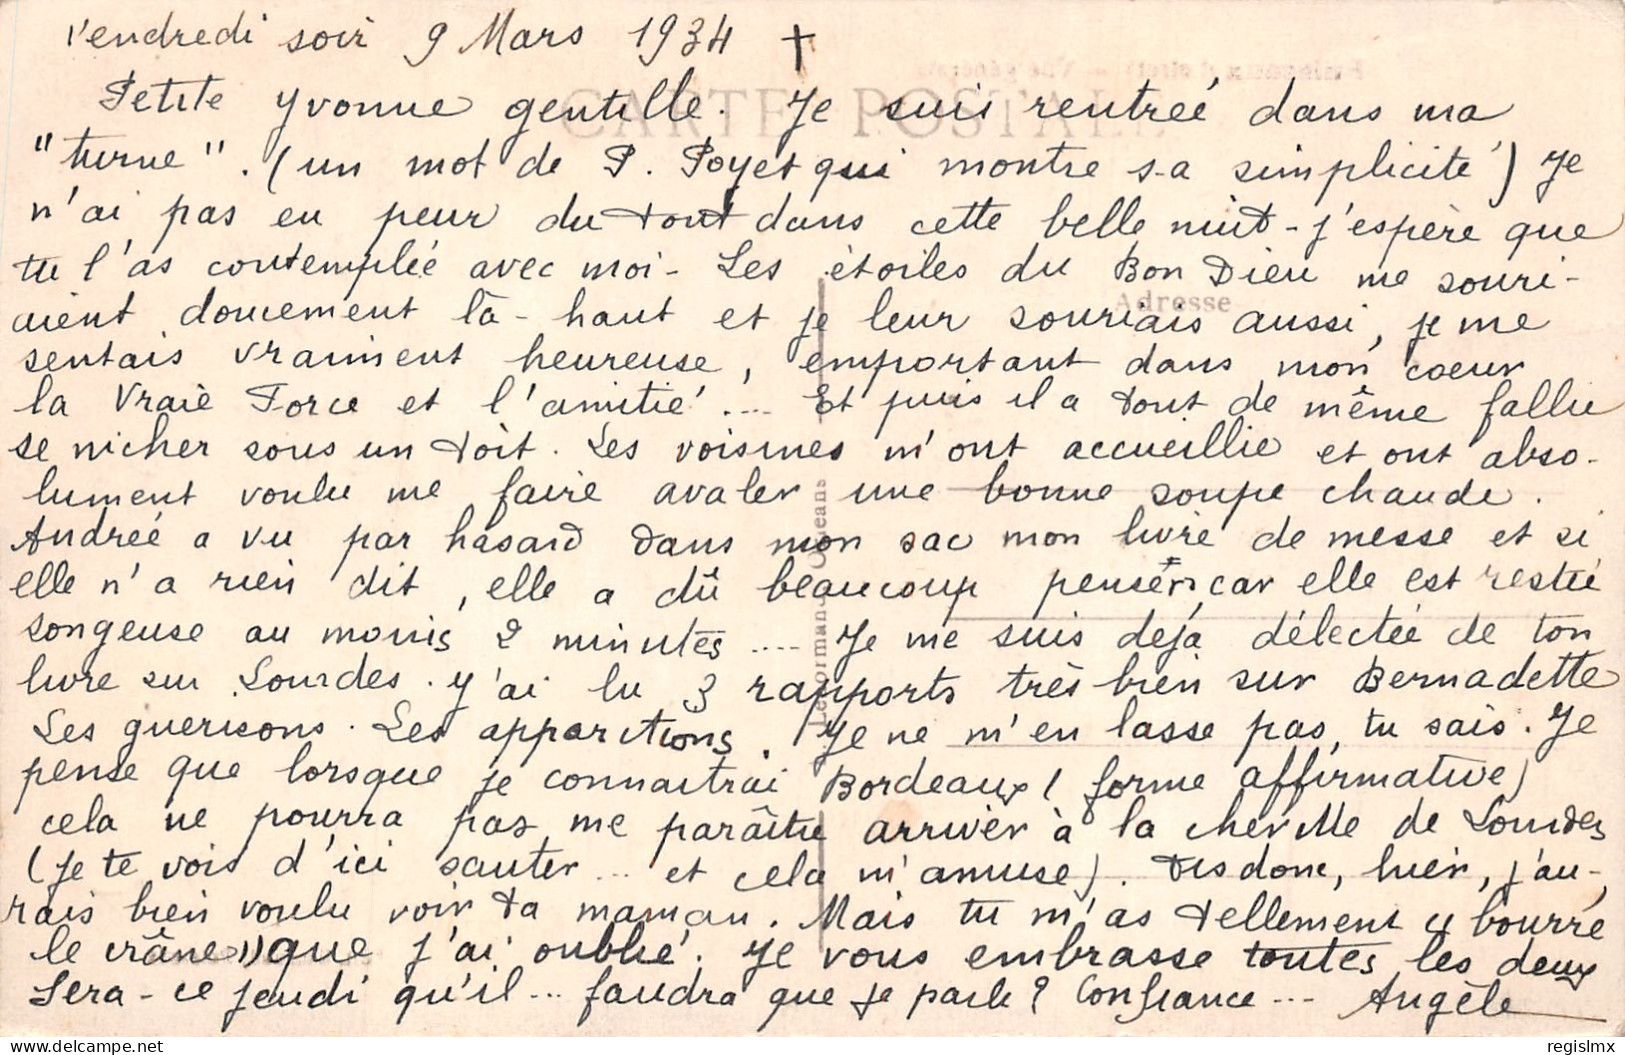 Vendredi soir 9 Mars 1934 †
Petite Yvonne gentille. Je suis rentreé dans ma
"turne". (un mot de P. Poyet qui montre sa simplicité) Je
n'ai pas eu peur du tout dans cette belle nuit - j'espère que
tu l'as contempleé avec moi - Les étoiles du Bon Dieu me souri-
aient doucement là-haut et je leur souriais aussi, je me
sentais vraiment heureuse, emportant dans mon coeur
la Vraie Force et l'amitié .... Et puis il a tout de même fallu
se nicher sous un toit. Les voisines m'ont accueillie et ont abso-
lument voulu me faire avaler une bonne soupe chaude.
Andreé a vu par hasard dans mon sac mon livre de messe et si
elle n'a rien dit, elle a dû beaucoup penser, car elle est restée
songeuse au moins 2 minutes .... Je me suis dejà délecteé de ton
livre sur Lourdes. J'ai lu 3 rapports très bien sur Bernadette
Les guerisons. Les apparitions. Je ne m'en lasse pas, tu sais. Je
pense que lorsque je connaitrai Bordeaux (forme affirmative)
cela ne pourra pas me paraître arriver à la cheville de Lourdes
(je te vois d'ici sauter ... et cela m'amuse). Dis donc, hier, j'au-
rais bien voulu voir ta maman. Mais tu m'as tellement "bourré
le crâne" que j'ai oublié. Je vous embrasse toutes les deux
Sera-ce jeudi qu'il ... faudra que je parle? Confiance ... Angèle
CARTE POSTALE
Adresse
Lenormand, Orléans
Puiseaux (Loiret) - Vue générale
regislmx